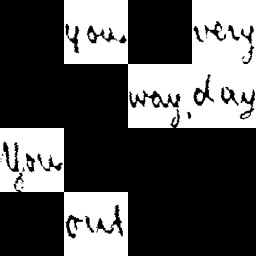 you. very
way, day
You
out